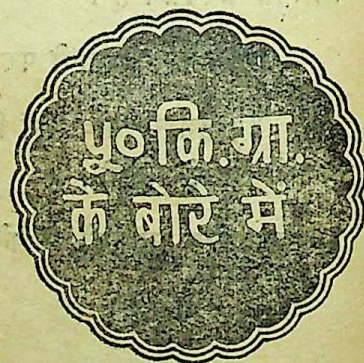 ५० कि.ग्रा.
के बोरे में